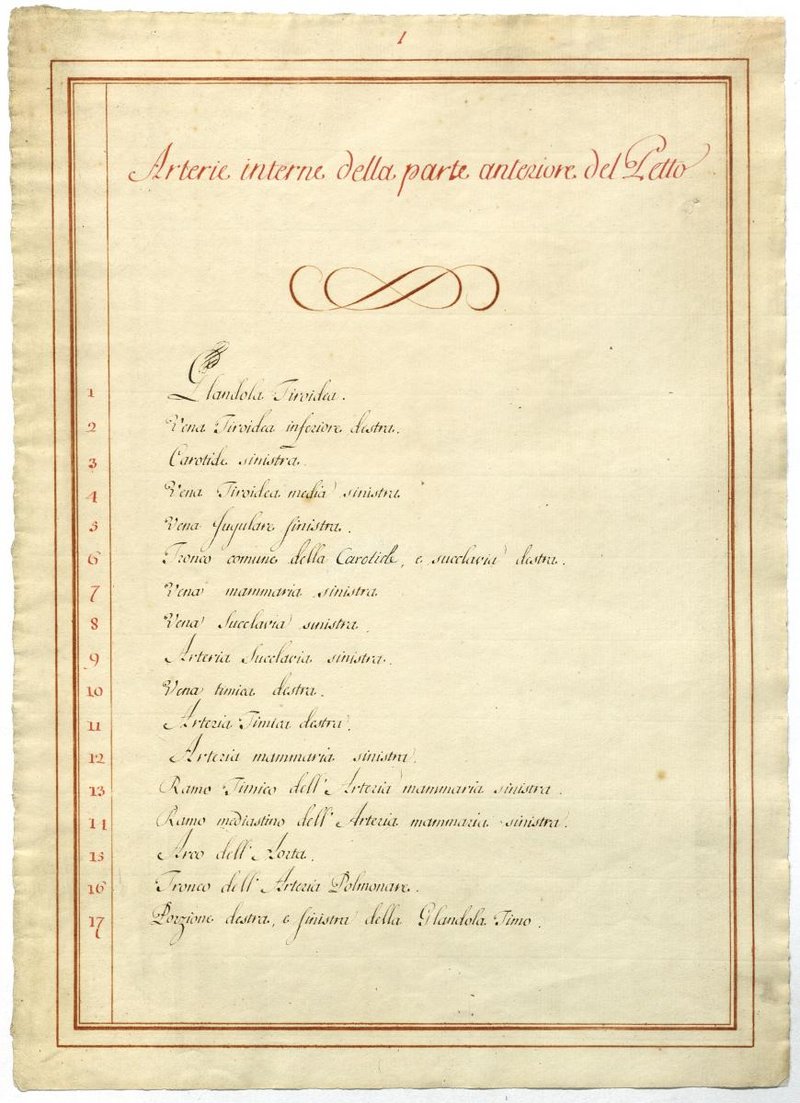 1
Arterie interne della parte anteriore del Petto
1 Glandola Tiroidea.
2 Vena Tiroidea inferiore destra.
3 Carotide sinistra.
4 Vena Tiroidea media sinistra
5 Vena Jugulare sinistra.
6 Tronco comune della Carotide, e succlavia destra.
7 Vena mammaria sinistra
8 Vena Succlavia sinistra.
9 Arteria Succlavia sinistra.
10 Vena timica destra.
11 Arteria Timica destra.
12 Arteria mammaria sinistra.
13 Ramo Timico dell' Arteria mammaria sinistra.
14 Ramo mediastino dell' Arteria mammaria sinistra.
15 Arco dell' Aorta.
16 Tronco dell' Arteria Polmonare.
17 Porzione destra, e sinistra della Glandola Timo.